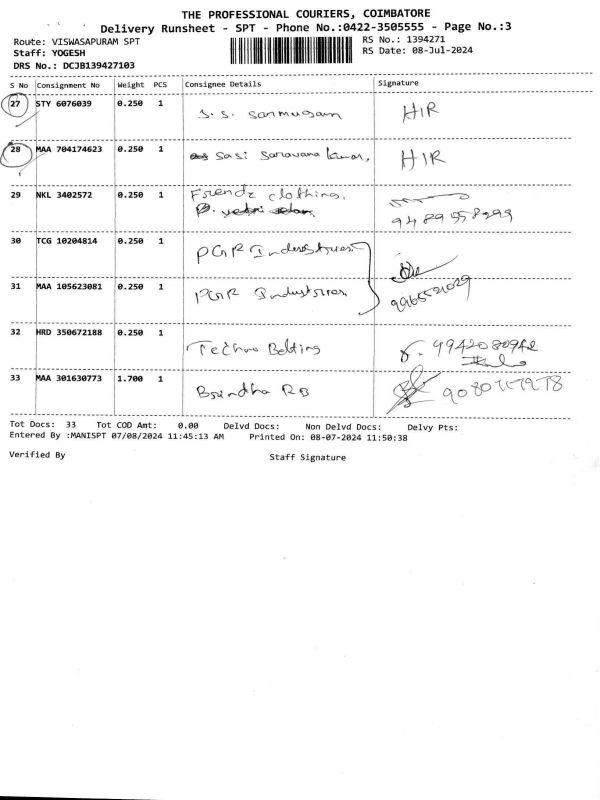 THE PROFESSIONAL COURIERS, COIMBATORE
Delivery Runsheet - SPT - Phone No.:0422-3505555 - Page No.:3
Route: VISWASAPURAM SPT
RS No.: 1394271
Staff: YOGESH
RS Date: 08-Jul-2024
DRS No.: DCJB139427103
S No Consignment No Weight PCS Consignee Details Signature
27 STY 6076039 0.250 1 S. S. Sanmugam HIR
28 MAA 704174623 0.250 1 Sasi Saravana kumar, HIR
29 NKL 3402572 0.250 1 Frendz clothing,
9489558299
30 TCG 10204814 0.250 1 PGR Industries
31 MAA 105623081 0.250 1 PGR Industries 9965521029
32 HRD 350672188 0.250 1 Techno Belting 9942080942
33 MAA 301630773 1.700 1 Brindha RB
Tot Docs: 33 Tot COD Amt: 0.00 Delvd Docs: Non Delvd Docs: Delvy Pts:
Entered By :MANISPT 07/08/2024 11:45:13 AM Printed On: 08-07-2024 11:50:38
Verified By Staff Signature